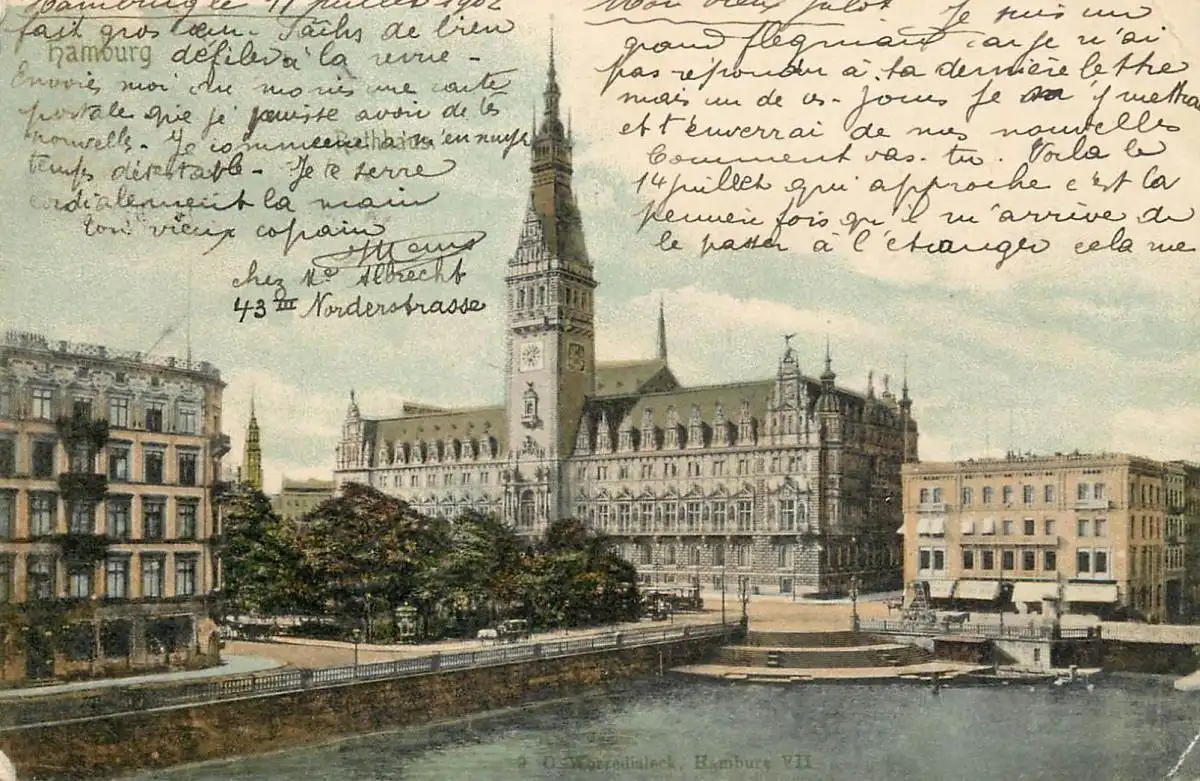 Hamburg le 11 juillet 1902
Mon vieux Julot. Je suis un
grand flegmard car je n'ai
pas répondu à ta dernière lettre
mais un de ces jours je m'y mettrai
et t'enverrai de mes nouvelles
Comment vas-tu. Voilà le
14 juillet qui approche c'est la
première fois qu'il m'arrive de
le passer à l'étranger cela me
fait gros cœur. Tâchs de bien
Hamburg
défiler à la revue -
Envoies moi au moins une carte
postale que je puisse avoir de tes
nouvelles - Je commence à m'ennuyer
Rathhaus
temps détestable - Je te serre
cordialement la main
ton vieux copain
chez Me Albrecht
43 III Norderstrasse
Hamburg VII